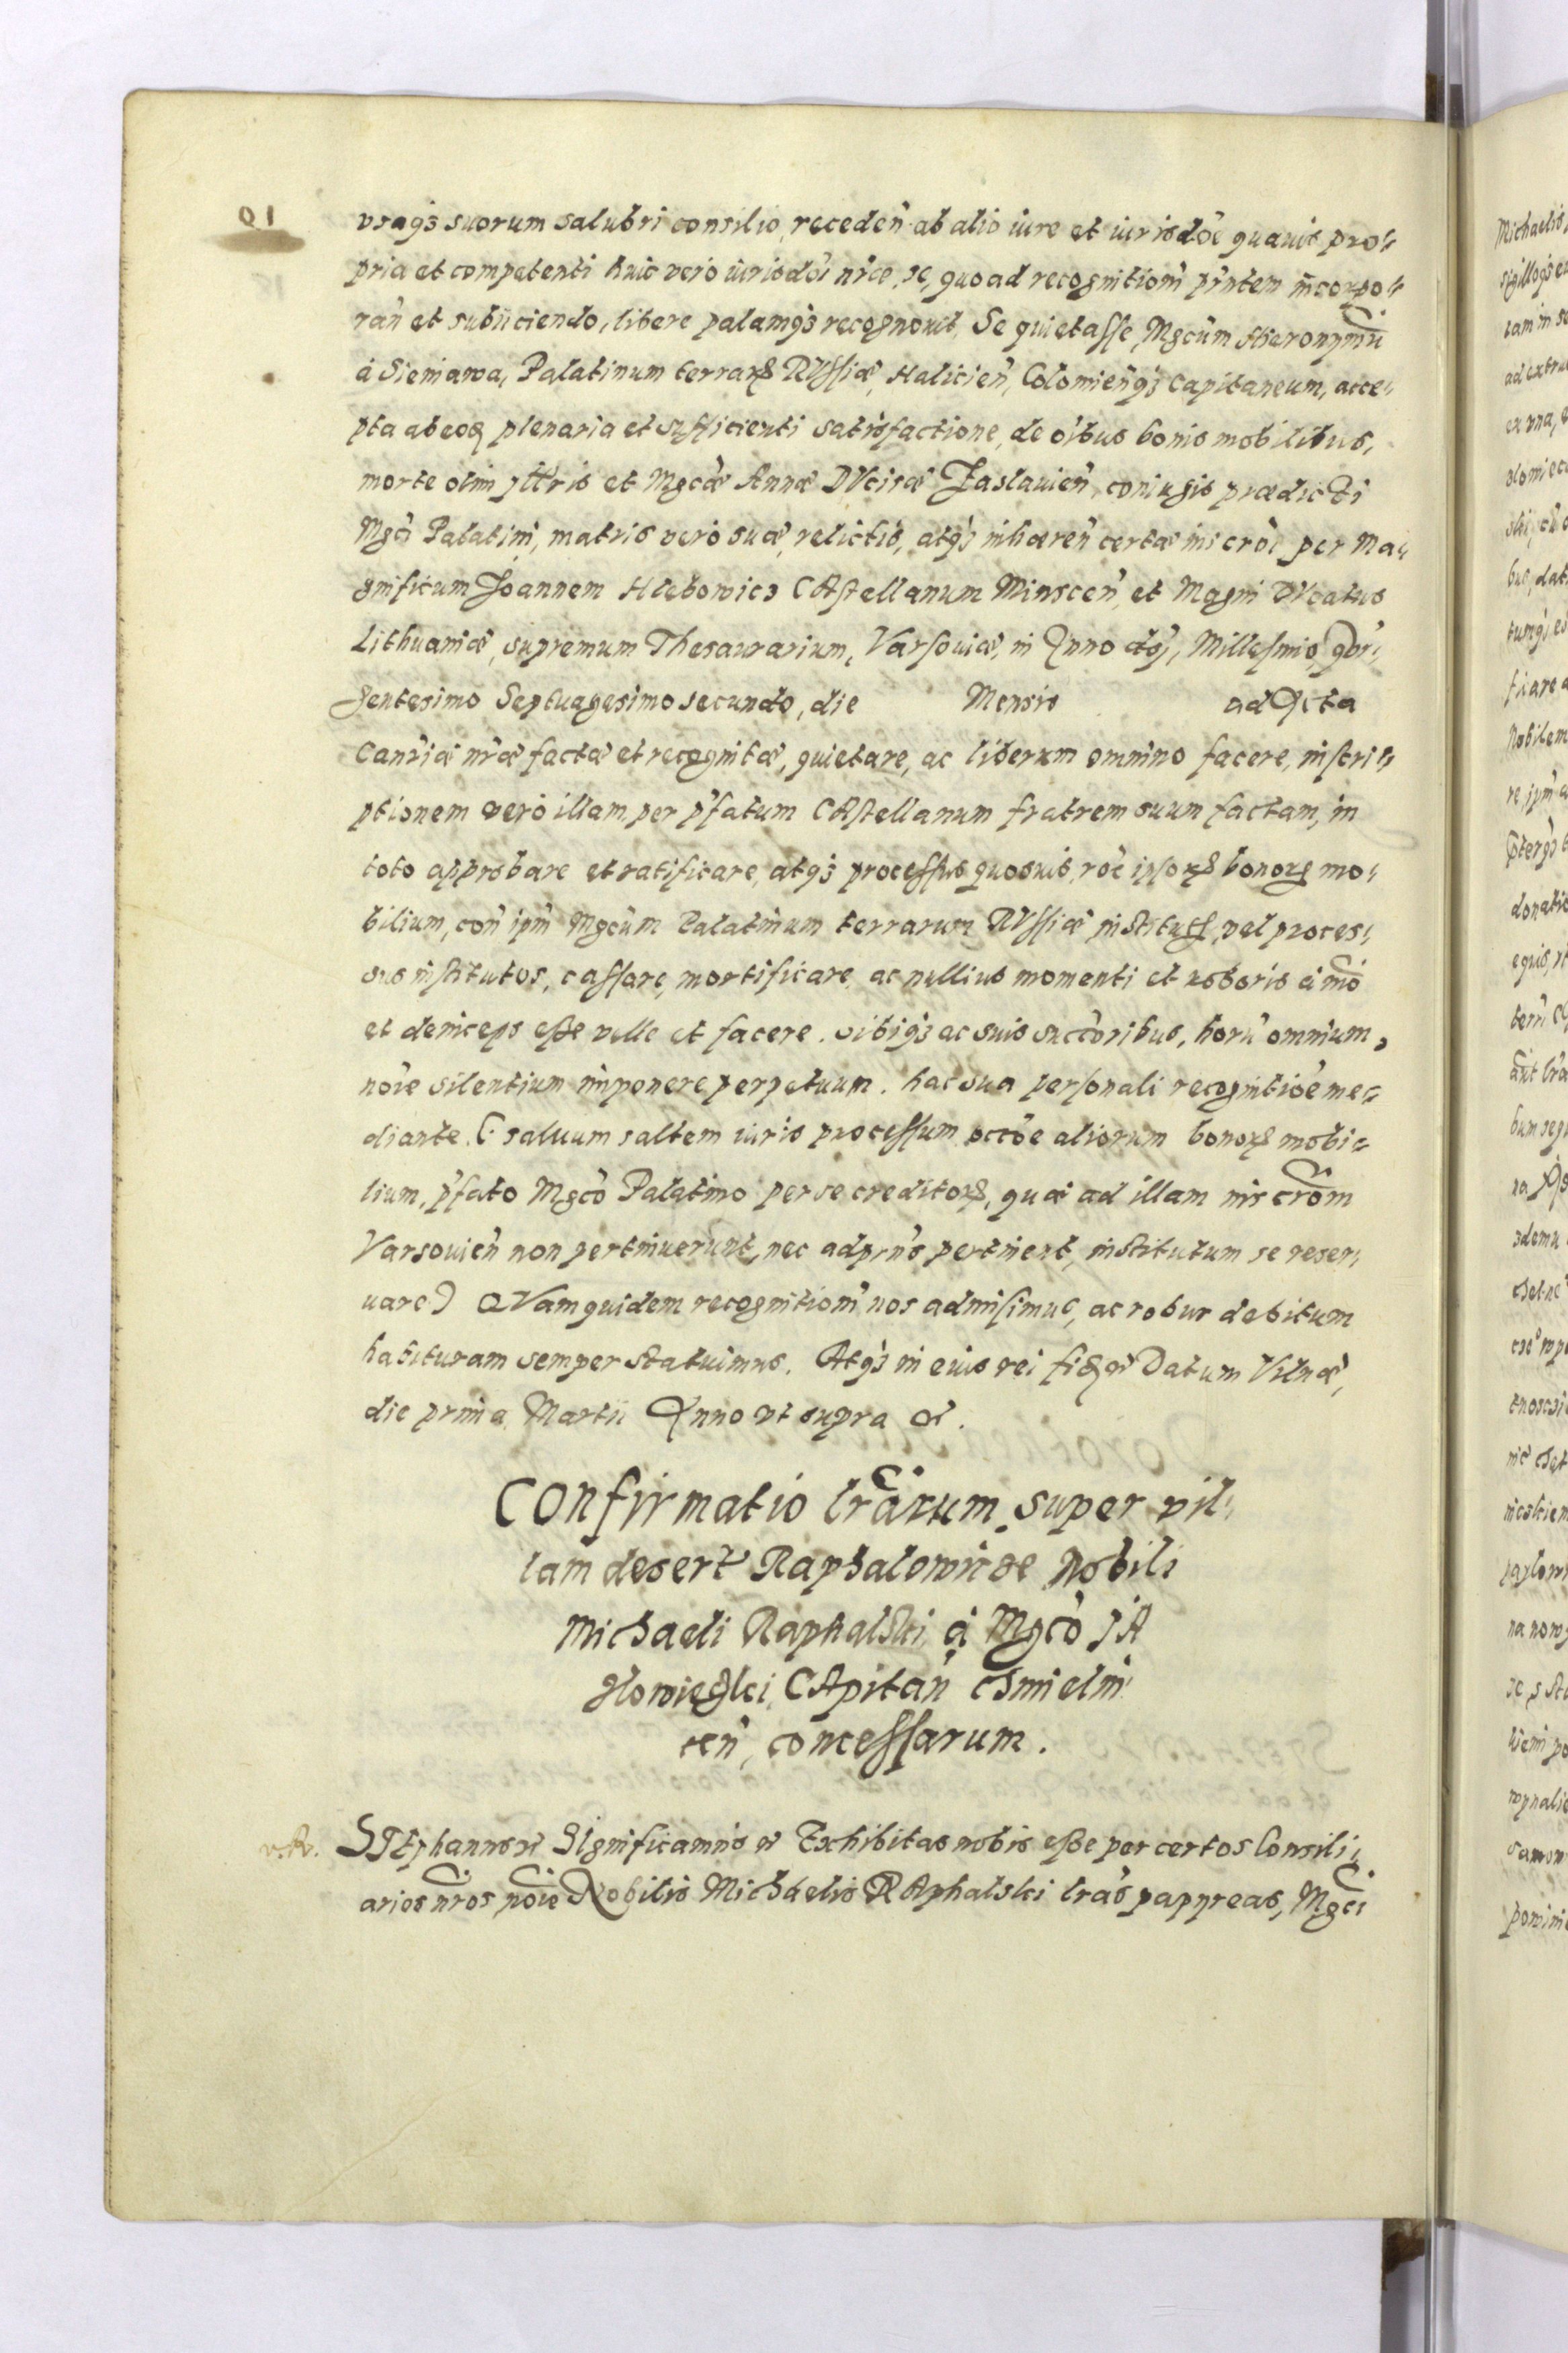 vsaq́3 suorum salubri consilio, receden̄ ab alio iure et iurisdōe quauis pro-
pria et competenti huic vero iurisdōi n̄rae, se, quo ad recognitionē p̄ntem incorpo-
ran̄ et subiiciendo, libere palamq́3 recognouit, Se quietasse, Mgcūm Hieronymū
á Sieniawa, Palatinum terrarꝝ RVssiæ, Halicien̄, Colomien̄q́3 Capitaneum, acce-
pta ab eoꝗ plenaria et sufficienti satisfactione, de oībus bonis mobilibus,
morte olim et Mgcæ Annæ DVcisæ Zaslauien̄, coniugis prædicti
Mgci Palatini, matris vero suæ, relictis, atq́3 inhæren̄ certæ inscrōi per Ma-
gnificum Joannem Hlebowicz CAstellanum Minscen̄, et Magni DVcatus
Lithuaniæ, supremum Thesaurarium, Varsouiæ, in Anno dnj, Millesimo, qui-
gentesimo Septuagesimo secundo, die Mensis ad Acta
Can̄riæ n̄ræ factæ et recognitæ, quietare, ac liberum omnino facere, inscri-
ptionem vero illam per p̄fatum CAstellanum fratrem suum factam, in
toto approbare et ratificare, atq́3 processus quosuis, rōe ipsorꝝ bonorꝝ mo-
bilium, con̄ ipm̄ Mgcūm Palatinum terrarum RVssiæ vel proces-
sus institutos, cassare, mortificare, ac nullius momenti et roboris á mō
et deinceps esse velle et facere. sibiq́3 ac suis succōribus, horū omnium,
noīe silentium imponere perpetuum. hac sua personali recognitiōe me-
diante. (saluum saltem iuris processum occōe aliorum bonorꝝ mobi-
lium, p̄fato Mgcō Palatino per se creditorꝝ, quæ ad illam inscrōm
Varsouien̄ non pertinuerunt, nec ad prn̄s pertinent, institutum se reser-
uare) QVam quidem recognitionē nos admisimus, ac robur debitum
habituram semper statuimus. Atq́3 in eius rei fidē &c Datum Vilnæ,
die prima Martii Anno vt supra &c.
COnfirmatio lrārum super vil-
lam desert Raphalowicze Nobili
Michaeli Raphalski á Mgcō JA
slowieczki, CApitan̄ Chmielni
cen̄, concessarum.
v. Rv. STEphanus &c SIgnificamus &c Exhibitas nobis esse per certos Consili-
arios n̄ros noīe Nobilis Michaelis RAphalski lrās papyreas, Mgci